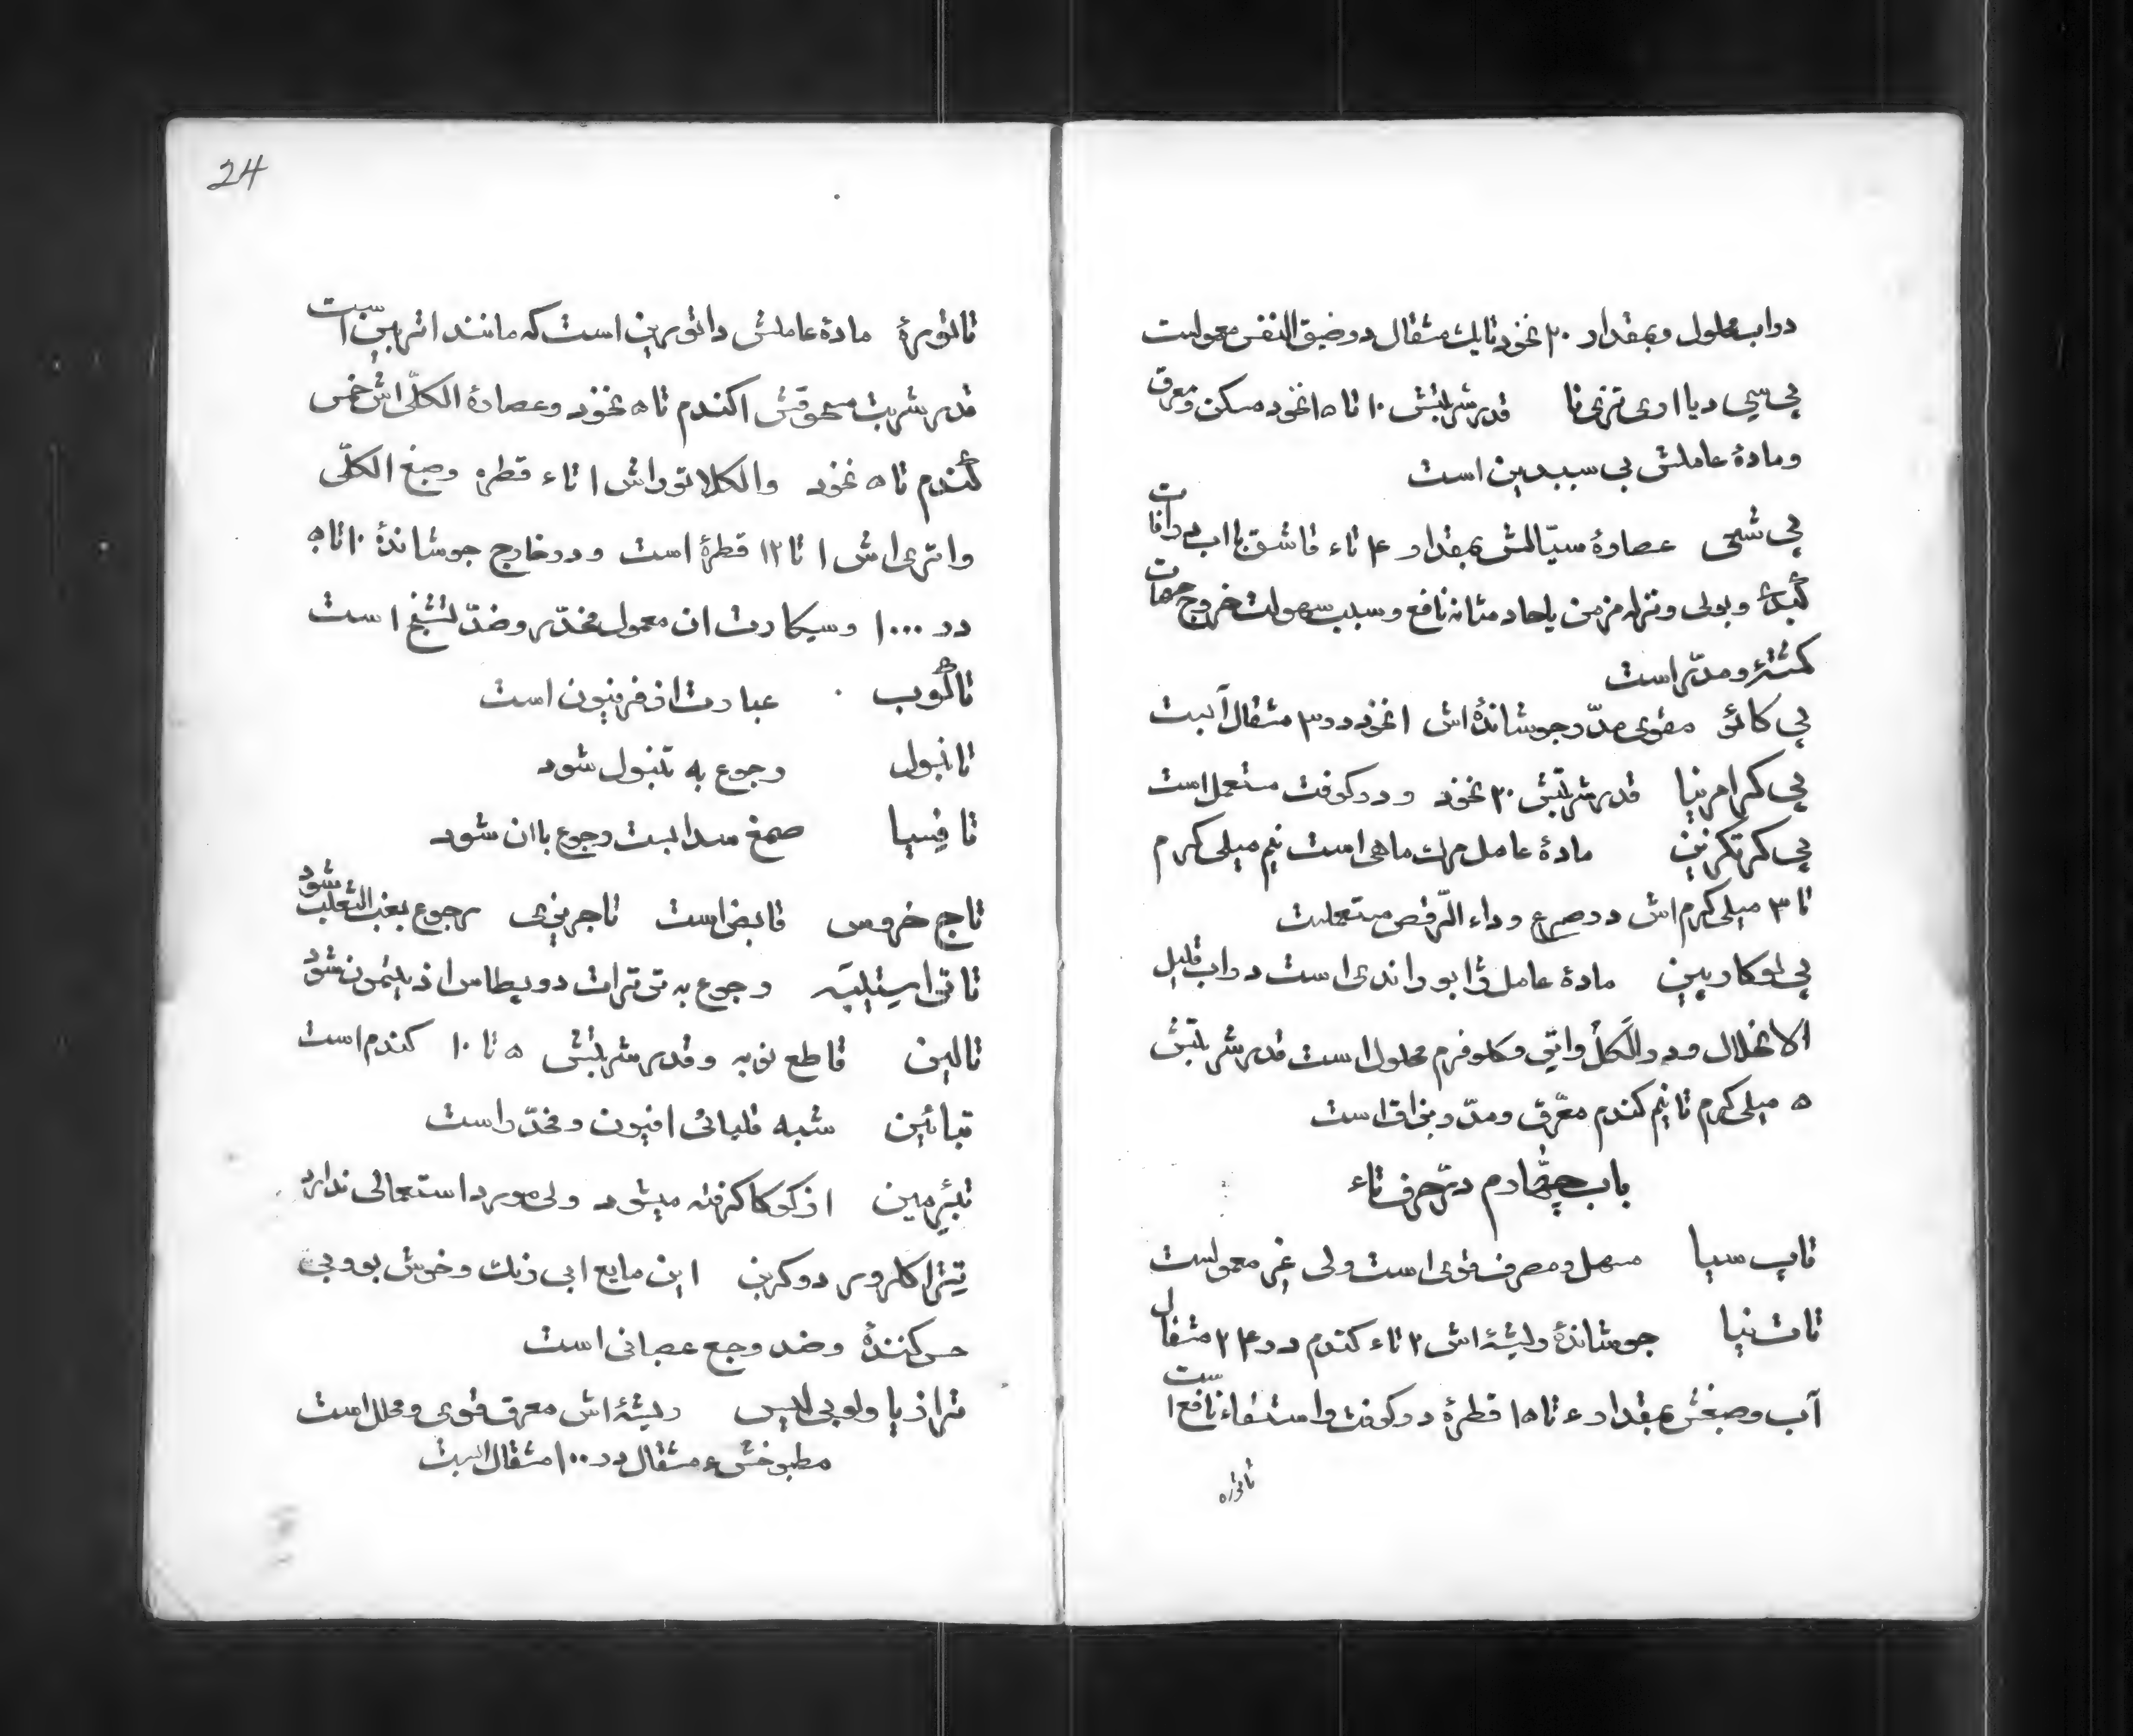 در اب محلول و بمقدار ۲۰ نخود تا یک مثقال در ضیق النفس معمولست
پی سی دیا اری تری نا قدر شربتش ۱۰ تا ۱۵ نخود مسکن و معرق
و ماده عاملش پی سیدین است
پی شی عصارهٔ سیّالش بمقدار ۴ تا ۶ قاشق با اب در افات
کبدی و بولی و نزله مزمن یا حاد مثانه نافع و سبب سهولت خروج حصات
گشته و مدرّ است
پی کائو مقوی مدرّ و جوشاندهٔ اش ۱ نخود در ۳۰ مثقال آبست
پی کرامنیا قدر شربتش ۳۰ نخود و در کوفت مستعمل است
پی کرتکزنین مادهٔ عامل مرک ماهی است نیم میلی کرم
تا ۳ میلی کرم اش در صرع و داء الرّقص مستعملست
پی لوکارپین مادهٔ عامل ژابوراندی است در اب قلیل
الانحلال و در الکل و اتر و کلوفرم محلول است قدر شربتش
۵ میلی کرم تا نیم کندم معرّق و مدرّ و بزاق است
باب چهارم در حرف تاء
تاپ سیا مسهل و مصرف قوی است ولی غیر معمولست
تات نیا جوشاندهٔ ریشهٔ اش ۲ تا ۶ کندم در ۲۴ مثقال
آب و صبغش بمقدار ۶ تا ۱۵ قطرهٔ در کوفت و استسقاء نافع است
تاتوره
24
تاتورهٔ مادهٔ عاملش داتورین است که مانند اترپین است
قدر شربت مسحوقش ۱ کندم تا ۵ نخود و عصارهٔ الکلّی اش خمس
کندم تا ۵ نخود و الکلاتوراش ۱ تا ۶ قطره و صبغ الکلّی
و اتری اش ۱ تا ۱۲ قطرهٔ است و در خارج جوشاندهٔ ۱۰ تا ۵
در ۱۰۰۰ و سیکارت ان معمول مخدّر و ضدّ تشنّج است
تاکوب عبارت از فرفیون است
تانبول رجوع به تنبول شود
تافسیا صمغ سدابست رجوع باان شود
تاج خروس قابض است تاجریزی رجوع بعنب الثعلب شود
تاتی استیبیه رجوع به تی ترات دو پطاس اذ یتمون شود
تالین قاطع نوبه و قدر شربتش ۵ تا ۱۰ کندم است
تبائین شبه قلیائی افیون و مخدّر است
تبئرمین از کوکا کرفته میشود ولی مورد استعمالی ندارد
تتراکلرور دو کربن این مایع ابی رنک و خوش بو و بی
حس کنندهٔ و ضد وجع عصبانی است
ترازیا و لوبی لیس ریشهٔ اش معرق قوی و محلل است
مطبوخش ۶ مثقال در ۱۰۰ مثقال ابست